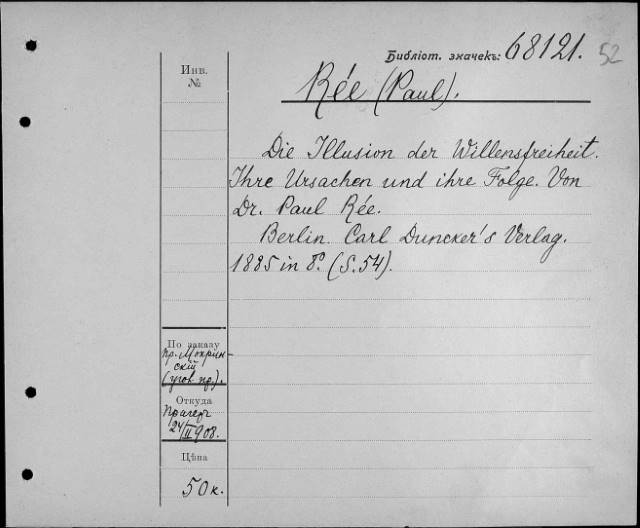 Библіот. значекъ: 68121. 52
Инв.
№
Rée (Paul).
Die Illusion der Willensfreiheit.
Ihre Ursachen und ihre Folge. Von
Dr. Paul Rée.
Berlin. Carl Duncker's Verlag.
1885 in 8º. (S. 54).
По заказу
пр. Мокрин-
скій
(угол. пр.).
Откуда
Прагеръ
24/II 908.
Цѣна
50 к.